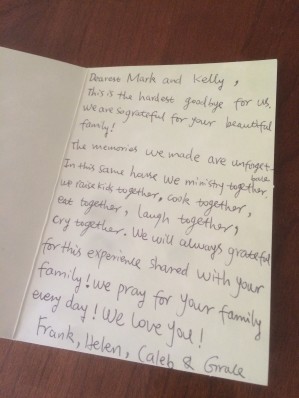 Dearest Mark and Kelly,
This is the hardest goodbye for us.
We are so grateful for your beautiful
family!
The memories we made are unforget-
In this same house we ministry together
table
we raise kids together, cook together,
eat together, laugh together,
cry together. We will always grateful
for this experience shared with your
family! We pray for your family
every day! We love you!
Frank, Helen, Caleb & Grace